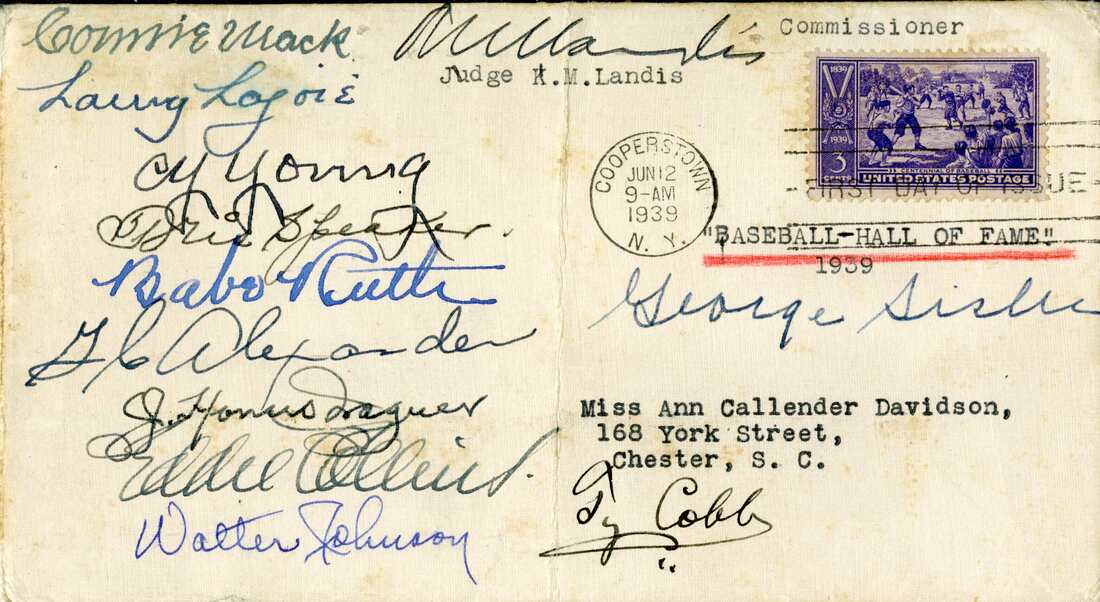 Connie Mack
Larry Lajoie
Cy Young
Tris Speaker.
Babe Ruth
G C Alexander
J. Honus Wagner
Eddie Collins.
Walter Johnson
KMLandis
Judge K.M.Landis
Commissioner
1839
1939
3 CENTS
CENTENNIAL OF BASEBALL
UNITED STATES POSTAGE
COOPERSTOWN
JUN 12
9-AM
1939
N. Y.
FIRST DAY OF ISSUE
"BASEBALL-HALL OF FAME"
1939
George Sisler
Miss Ann Callender Davidson,
168 York Street,
Chester, S. C.
Ty Cobb